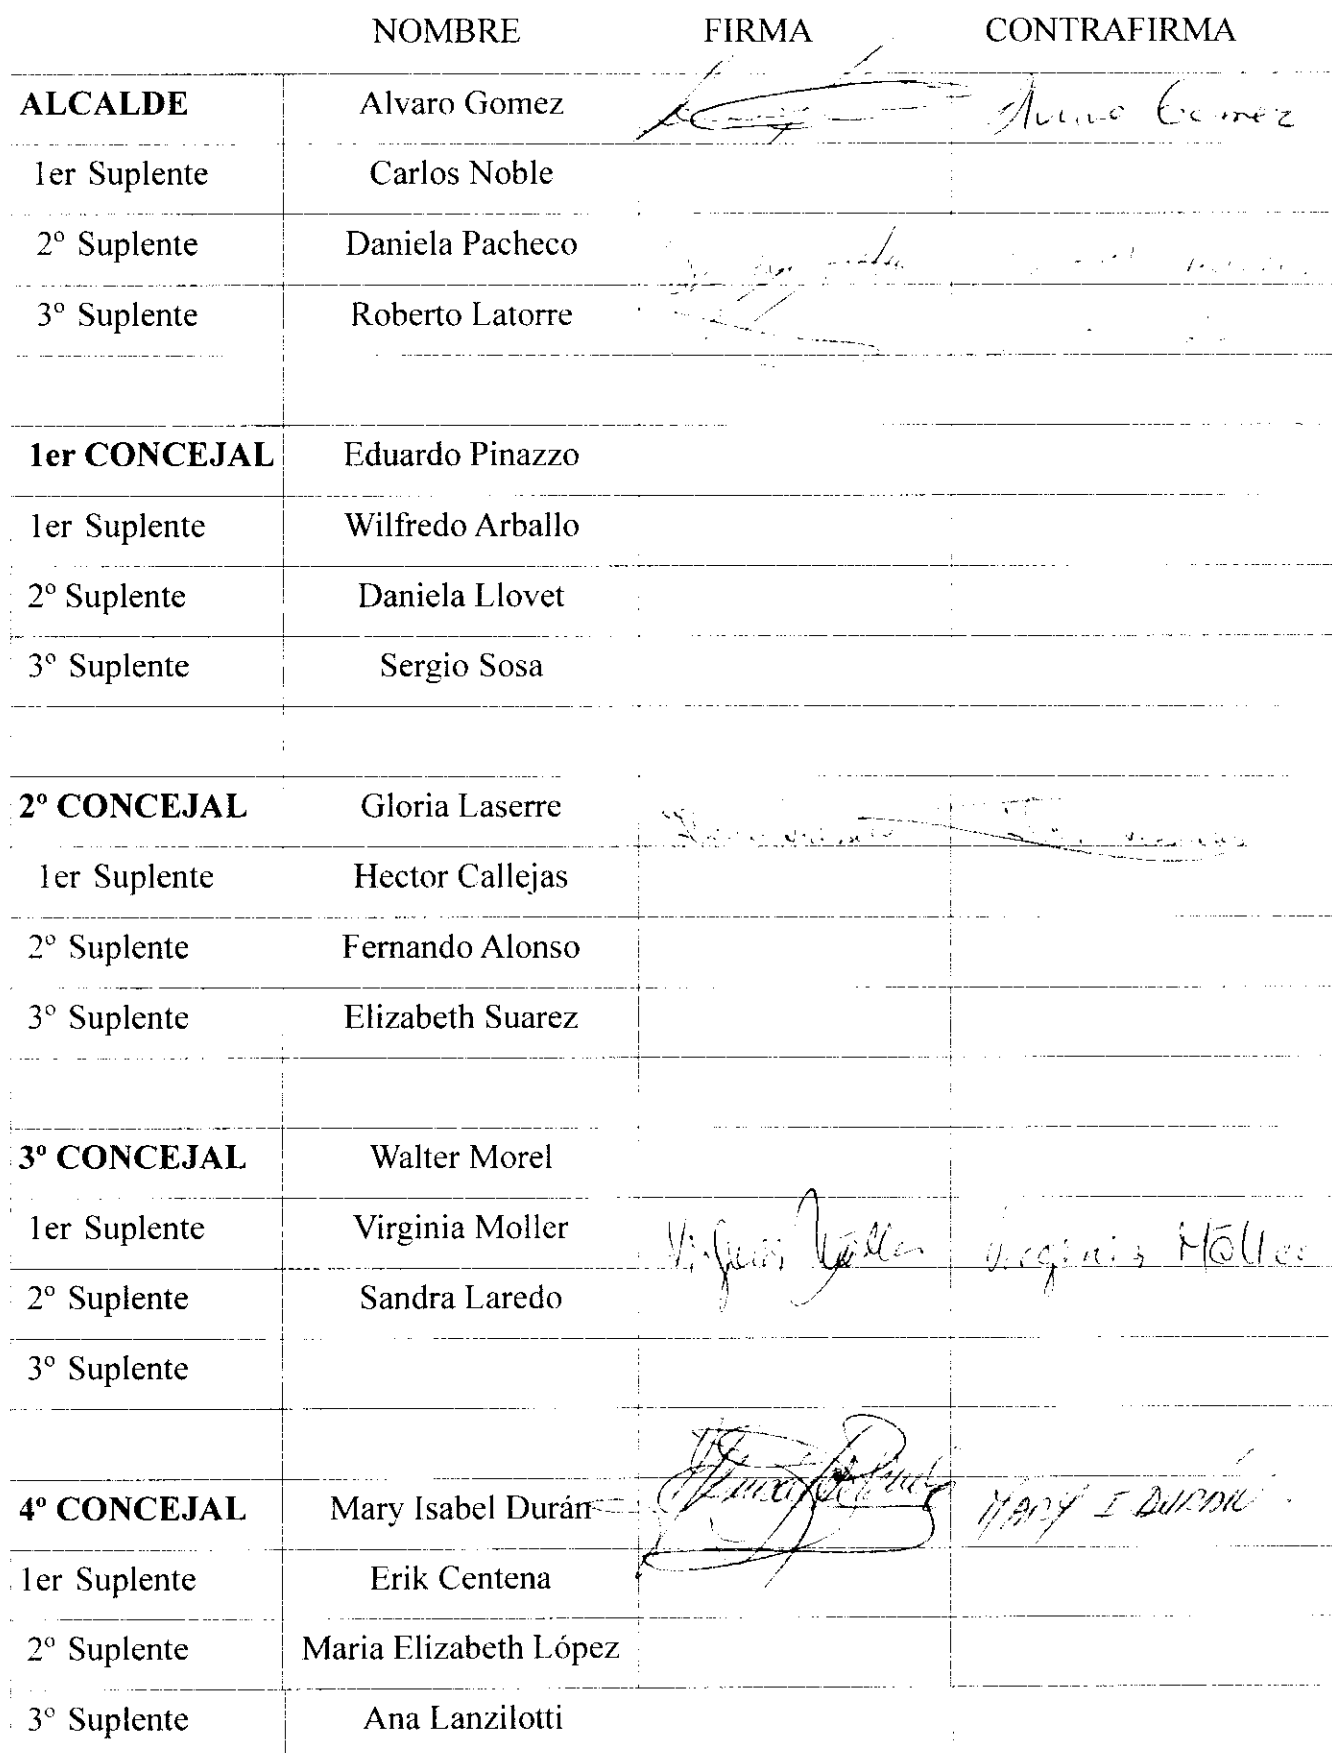 NOMBRE FIRMA CONTRAFIRMA
ALCALDE Alvaro Gomez Gomez
1er Suplente Carlos Noble
2º Suplente Daniela Pacheco
3º Suplente Roberto Latorre
1er CONCEJAL Eduardo Pinazzo
1er Suplente Wilfredo Arballo
2º Suplente Daniela Llovet
3º Suplente Sergio Sosa
2º CONCEJAL Gloria Laserre
1er Suplente Hector Callejas
2º Suplente Fernando Alonso
3º Suplente Elizabeth Suarez
3º CONCEJAL Walter Morel
1er Suplente Virginia Moller Virginia Möller Virginia Möller
2º Suplente Sandra Laredo
3º Suplente
4º CONCEJAL Mary Isabel Durán MARY I DURÁN
1er Suplente Erik Centena
2º Suplente Maria Elizabeth López
3º Suplente Ana Lanzilotti